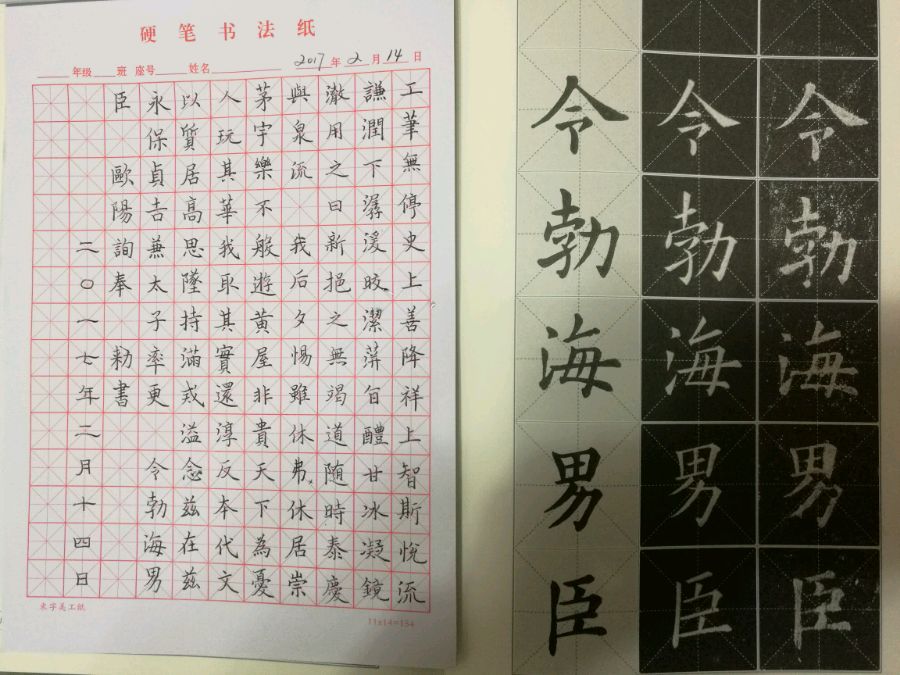 硬笔书法纸
年级 班 座号 姓名 2017年2月14日
工筆無停史上善降祥上智斯悅流
謙潤下潺湲皎潔蓱旨醴甘冰凝鏡
澈用之日新挹之無竭道随時泰慶
與泉流 我后夕惕雖休弗休居崇
茅宇樂不般遊黄屋非貴天下為憂
人玩其華我取其實還淳反本代文
以質居高思墜持滿戒溢念兹在兹
永保貞吉兼太子率更 令勃海男
臣 歐陽詢奉 勑書
二〇一七年二月十四日
米字美工纸
11x14=154
令勃海男臣
令勃海男臣
令勃海男臣